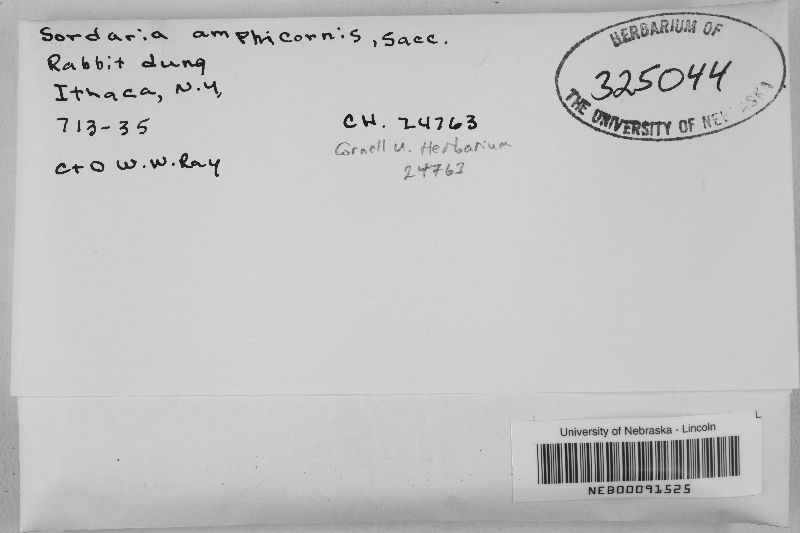 Sordaria amphicornis, Sacc.
Rabbit dung
Ithaca, N.Y,
713-35
C+D W.W.Ray
CH. 24763
Cornell U. Herbarium
24763
HERBARIUM OF
325044
THE UNIVERSITY OF NEBRASKA
L
University of Nebraska - Lincoln
NEB00091525